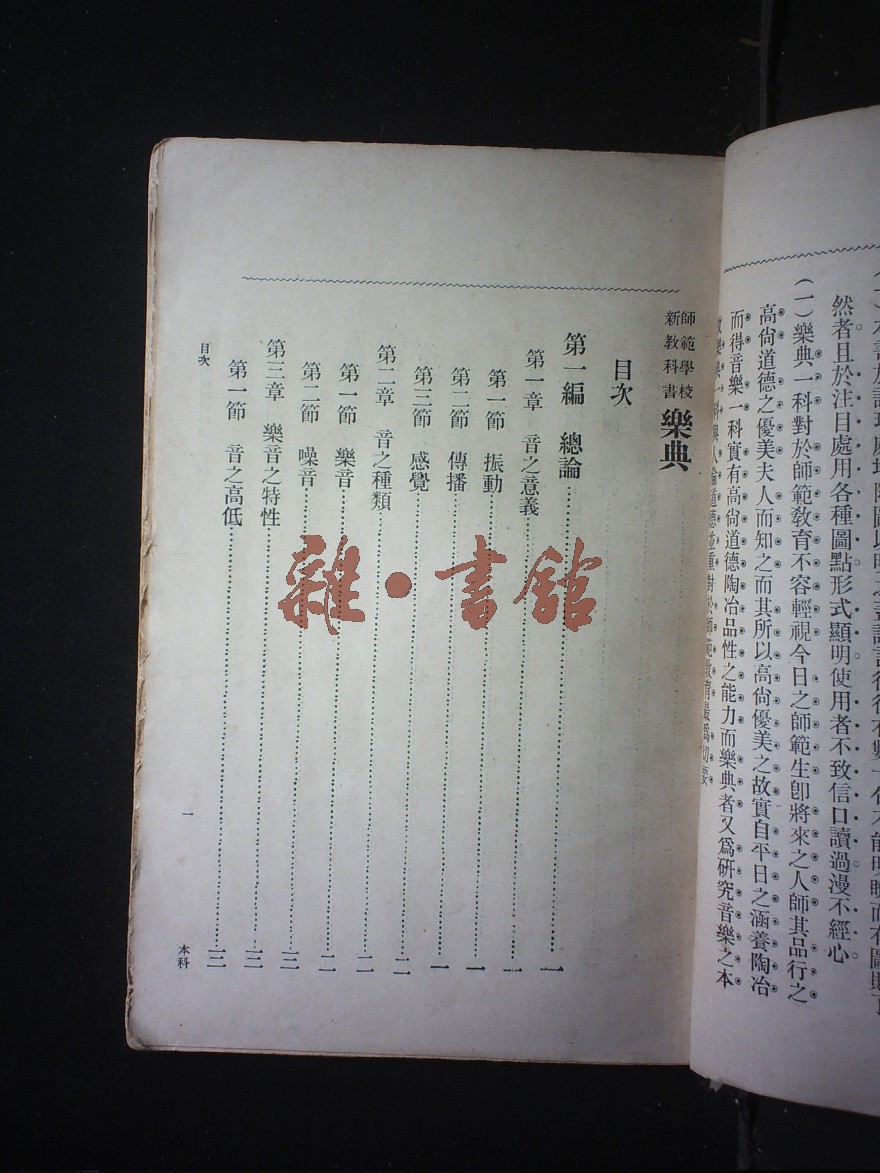 然者且於注目處用各種圖點形式顯明使用者不致信口讀過漫不經心
（一）樂典一科對於師範教育不容輕視今日之師範生卽將來之人師其品行之
高尙道德之優美夫人而知之而其所以高尙優美之故實自平日之涵養陶冶
而得音樂一科實有高尙道德陶冶品性之能力而樂典者又爲硏究音樂之本
師範學校
新教科書
樂典
目次
第一編　總論……一
第一章　音之意義……一
第一節　振動……一
第二節　傳播……一
第三節　感覺……二
第二章　音之種類……二
第一節　樂音……二
第二節　噪音……三
第三章　樂音之特性……三
第一節　音之高低……三
目次
一
本科
雜·書館